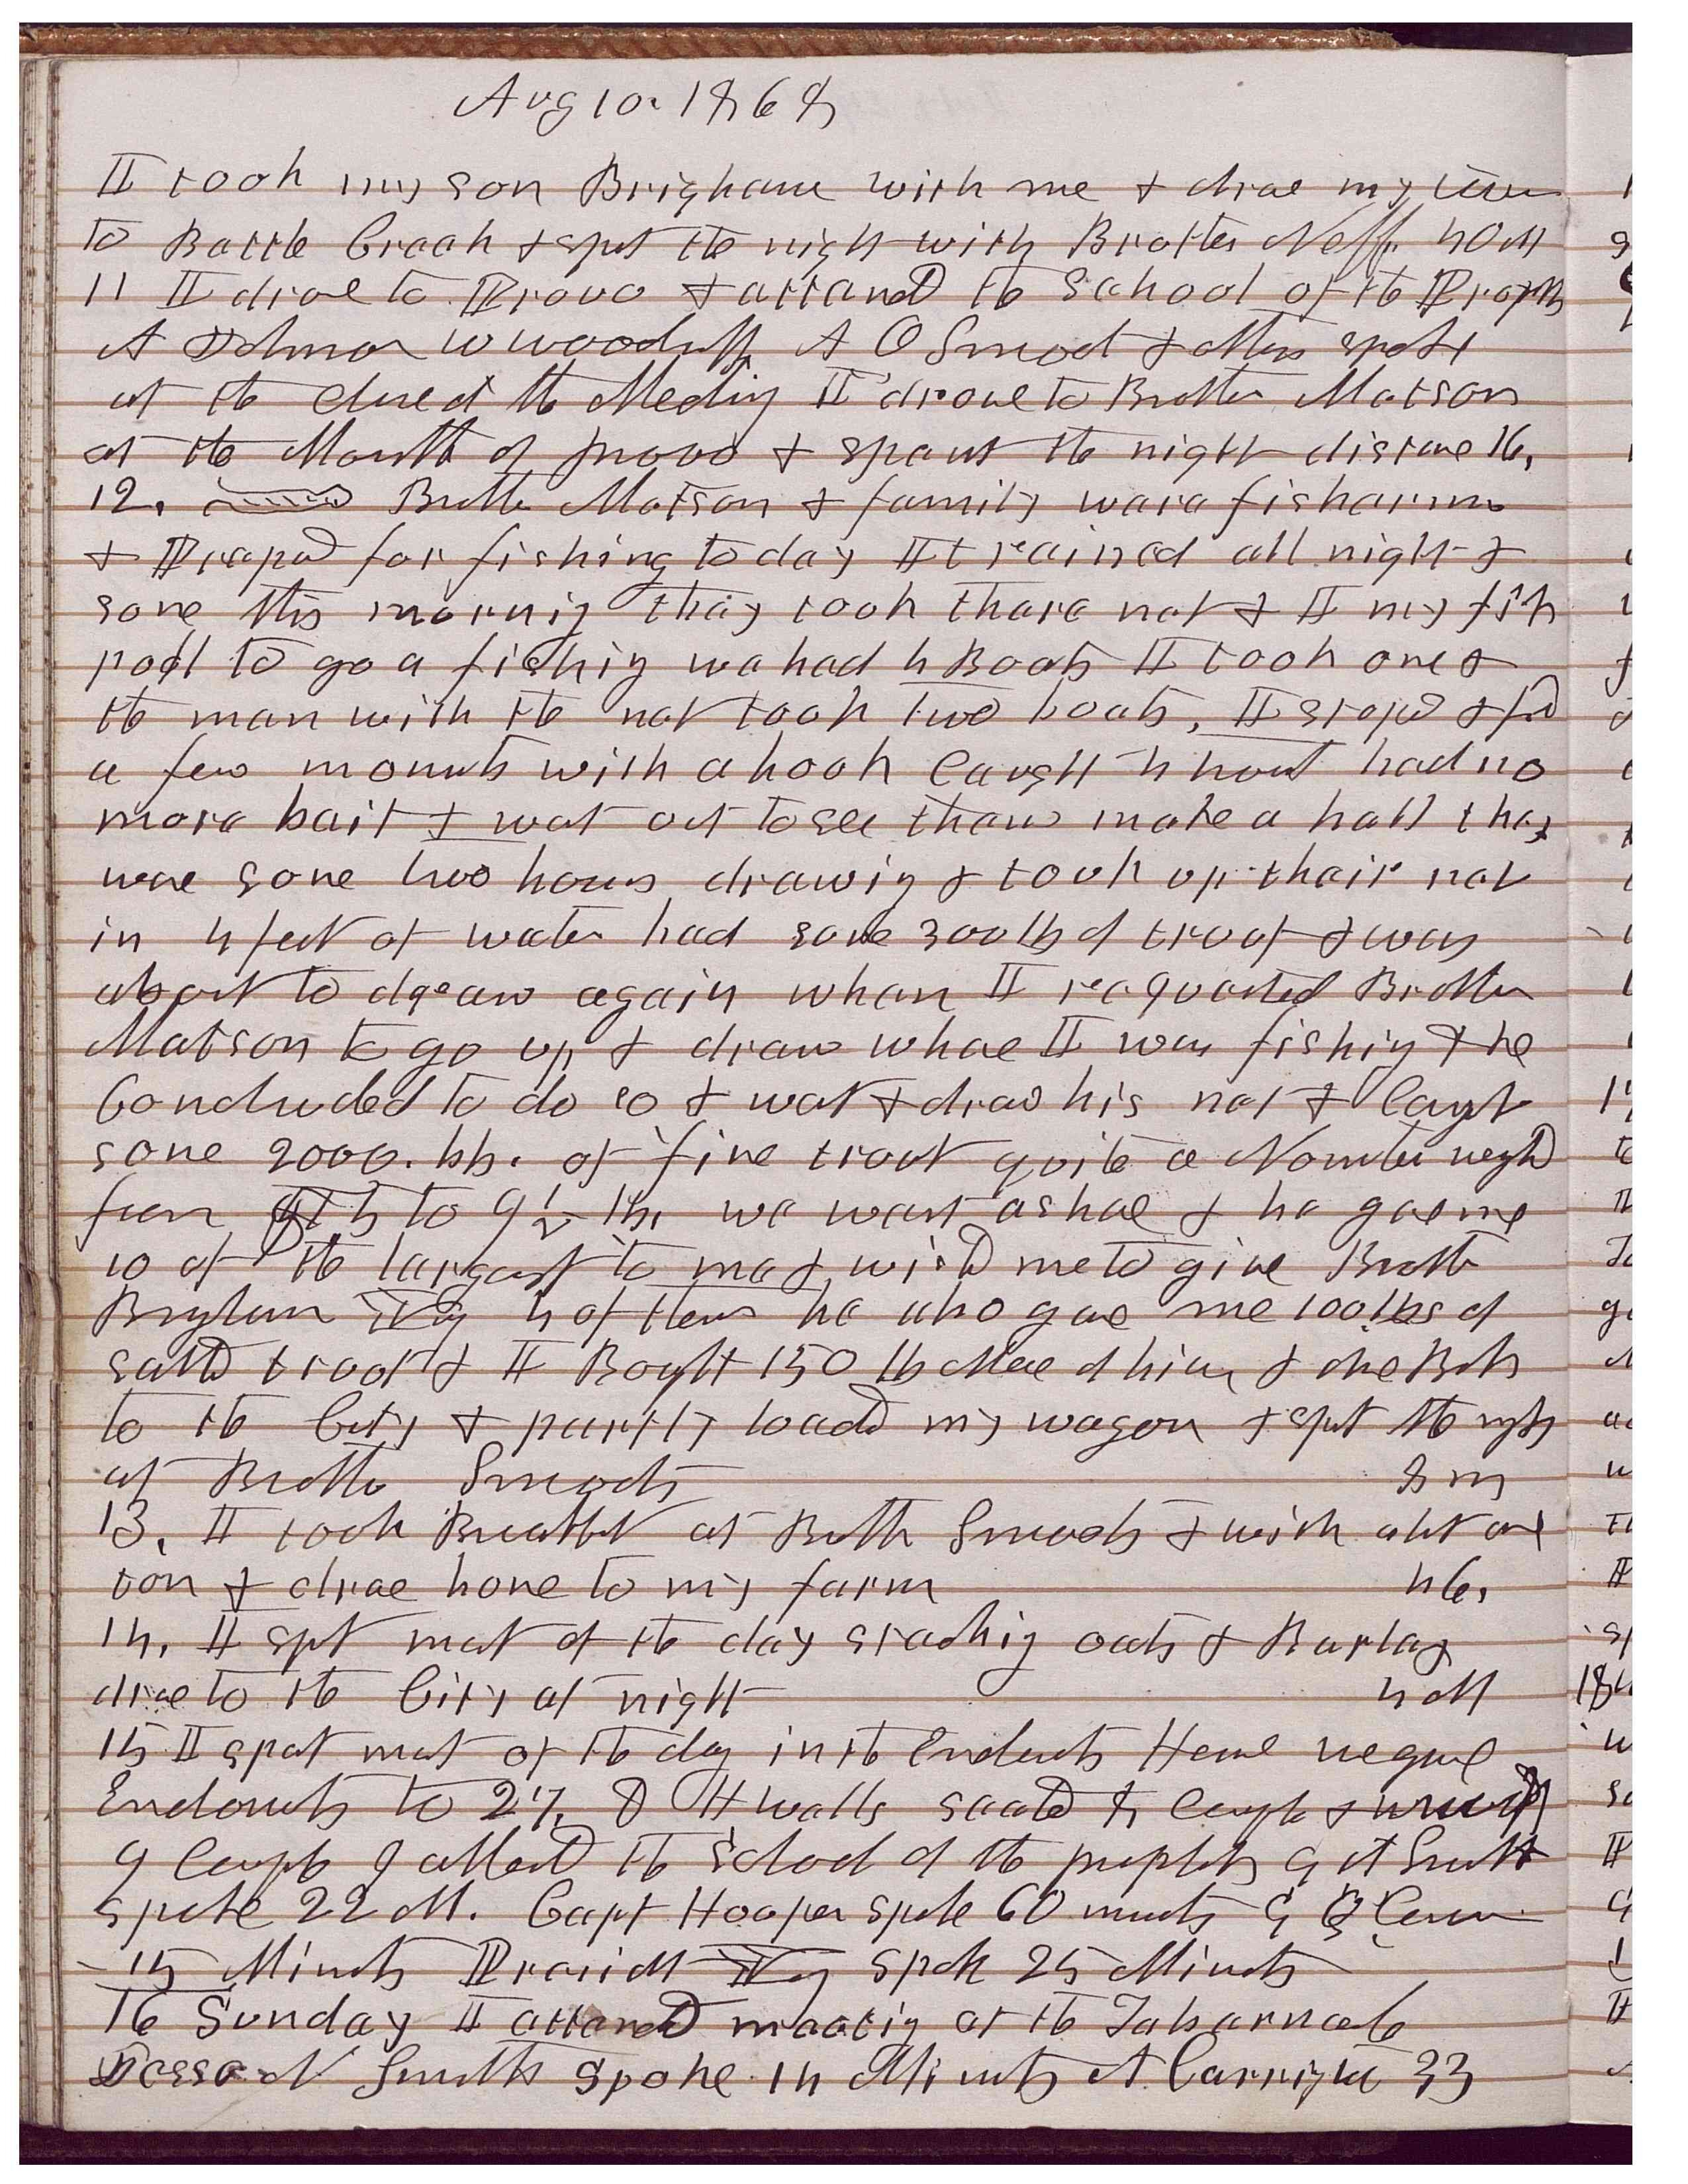 Aug 10. 1868
I took my son Brigham with me & drove my team
to Battle Creek & spent the night with Brother Neff. 40 M
11 I drove to Provo & attend the School of the Prophets
W Woodruff A O Smoot & others spoke
at the close of the Meeting I drove to Brother Matson
at the Mouth of provo & spent the night distance 16.
12. Brother Matson & family ware fisharmen
& Prepared for fishing to day It rained all night &
some this morning thay took thare net & I my fish
pool to go a fishing we had 4 Boats I took one &
the man with the net took two boats, I stoped & fished
a few moments with a hook caught 4 trout had no
more bait & went out to see them make a hall thay
were some two hours drawing & took up thair net
in 4 feet of water had some 300 lbs of trout & was
about to draw again when I requested Brother
Matson to go up & draw whare I was fishing & he
Concluded to do so & went & drew his net & Caught
some 2000. lbs. of fine trout quite a Number weighed
from 5 to 9 1/2 lbs. we went ashore & he gave me
10 of the largest to me & wished me to give Brother
Brigham Young 4 of them he also gave me 100 lbs of
salted trout & I Bought 150 lb More of him & drove Back
to the City & partly loaded my wagon & spent the night
at Brother Smoots 8 m
13. I took Breakfast at Brother Smoots & with about one
ton & drove home to my farm 46.
14. I spent most of the day stacking oats & Barley
drove to the City at night 4 M
15 I spent most of the day in the Endowments House we gave
Endowments to 27. D H Wells sealed 8 Couple & W Woodruff
9 Couple I attended the School of the prophets G A Smith
spoke 22 M. Capt Hooper spoke 60 minuts G Q Cannon
15 Minuts President Young spoke 25 Minuts
16 Sunday I attended meeting at the Tabernacle
Jesse N Smith spoke 14 Minuts A Carrington 33